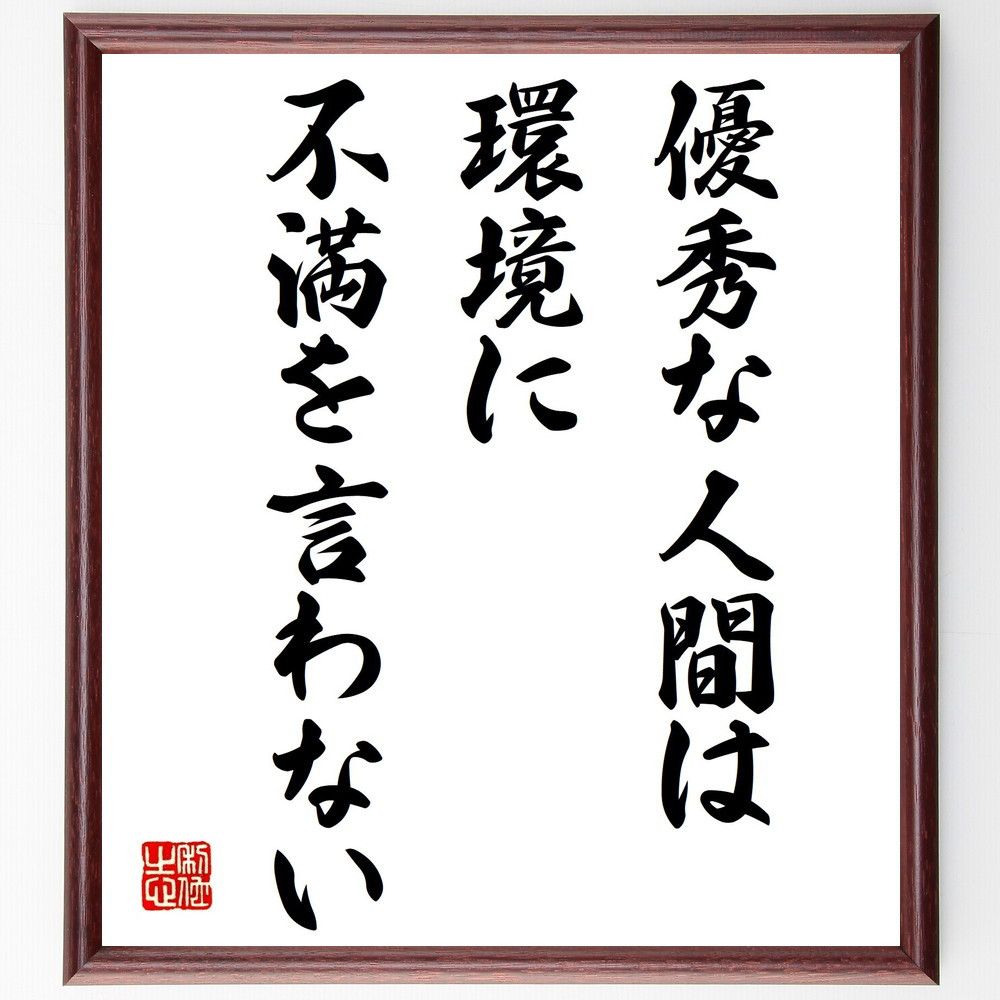 優秀な人間は
環境に
不満を言わない